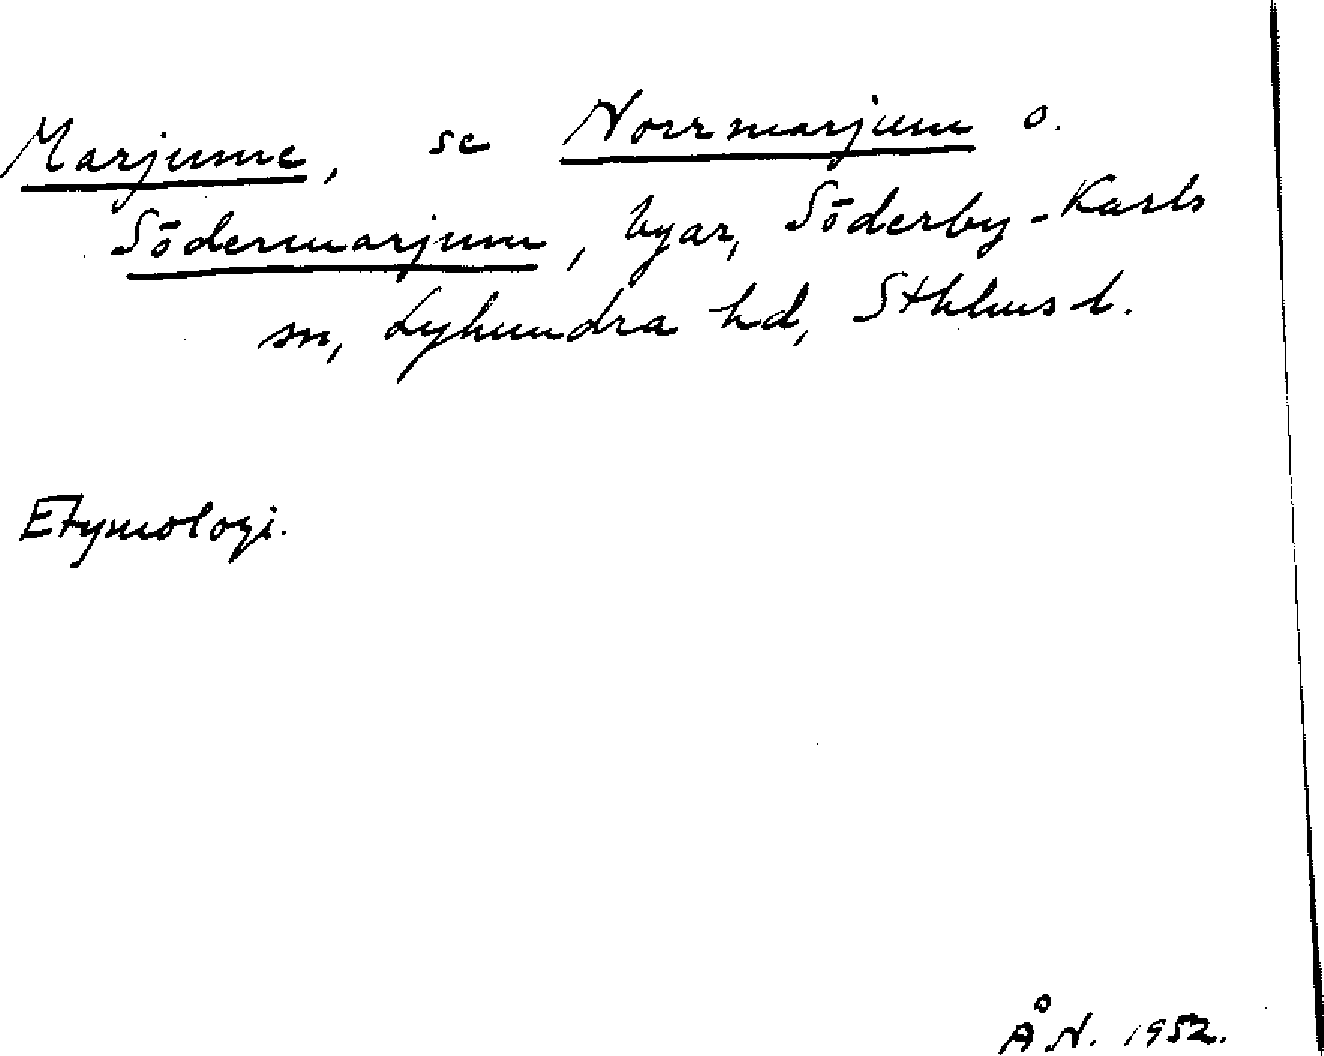 Marjume, se Norrmarjum o.
Södermarjum, byar, Söderby-Karls
sn, Lyhundra hd, Sthlms l.
Etymologi.
Å N. 1952.